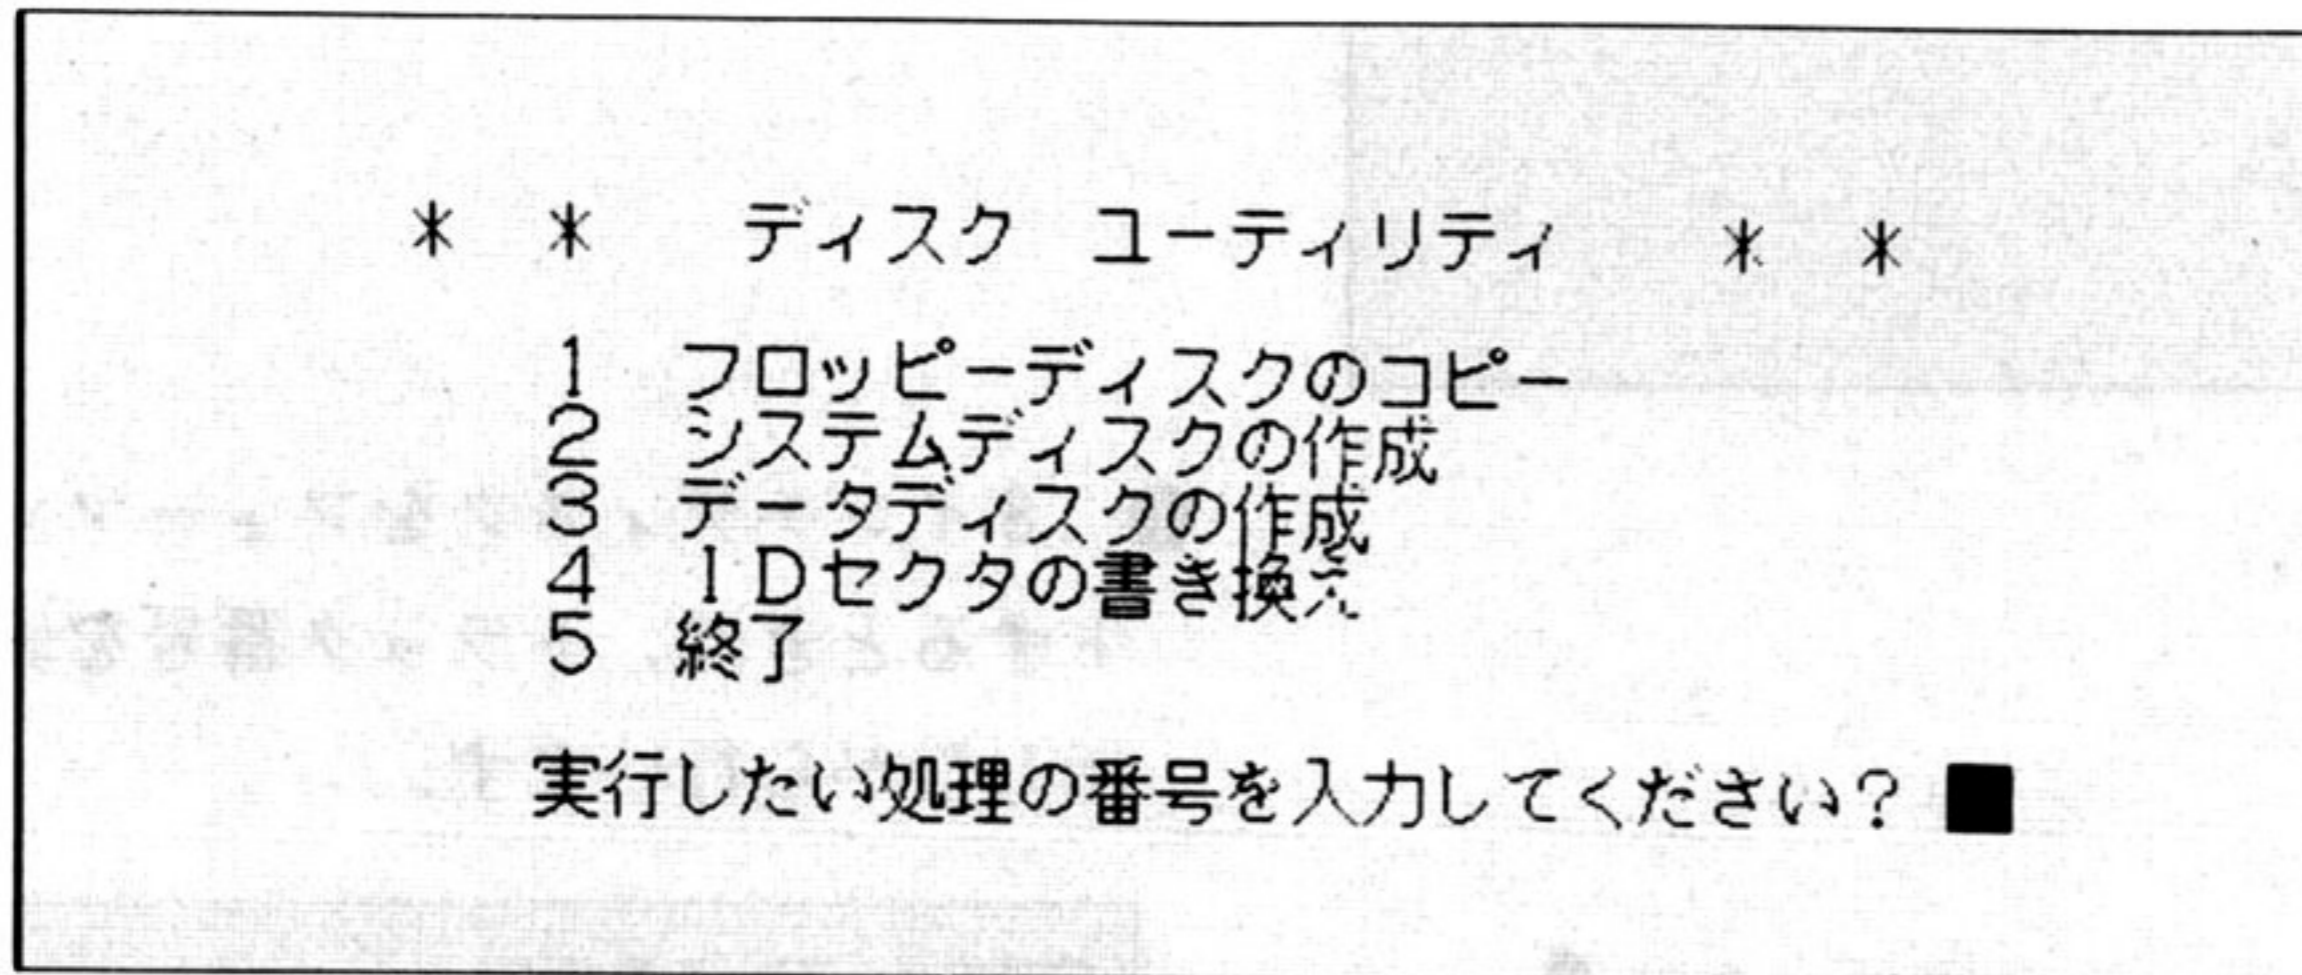 ＊ ＊ ディスク ユーティリティ ＊ ＊
1 フロッピーディスクのコピー
2 システムディスクの作成
3 データディスクの作成
4 IDセクタの書き換え
5 終了
実行したい処理の番号を入力してください？ ■